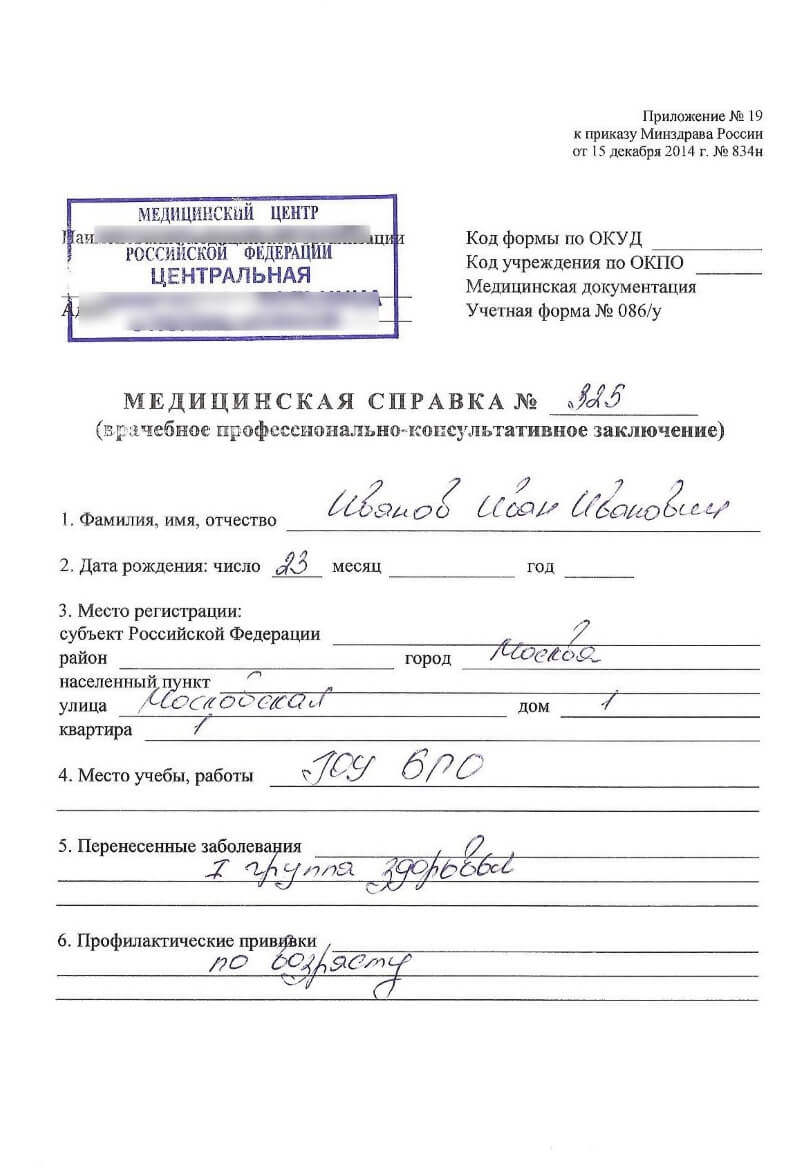 Приложение № 19
к приказу Минздрава России
от 15 декабря 2014 г. № 834н
МЕДИЦИНСКИЙ ЦЕНТР
РОССИЙСКОЙ ФЕДЕРАЦИИ
ЦЕНТРАЛЬНАЯ
Код формы по ОКУД
Код учреждения по ОКПО
Медицинская документация
Учетная форма № 086/у
МЕДИЦИНСКАЯ СПРАВКА № 325
(врачебное профессионально-консультативное заключение)
1. Фамилия, имя, отчество Иванов Иван Иванович
2. Дата рождения: число 23 месяц год
3. Место регистрации:
субъект Российской Федерации
район город Москва
населенный пункт
улица Московская дом 1
квартира 1
4. Место учебы, работы ГОУ ВПО
5. Перенесенные заболевания
I группа здоровья
6. Профилактические прививки
по возрасту